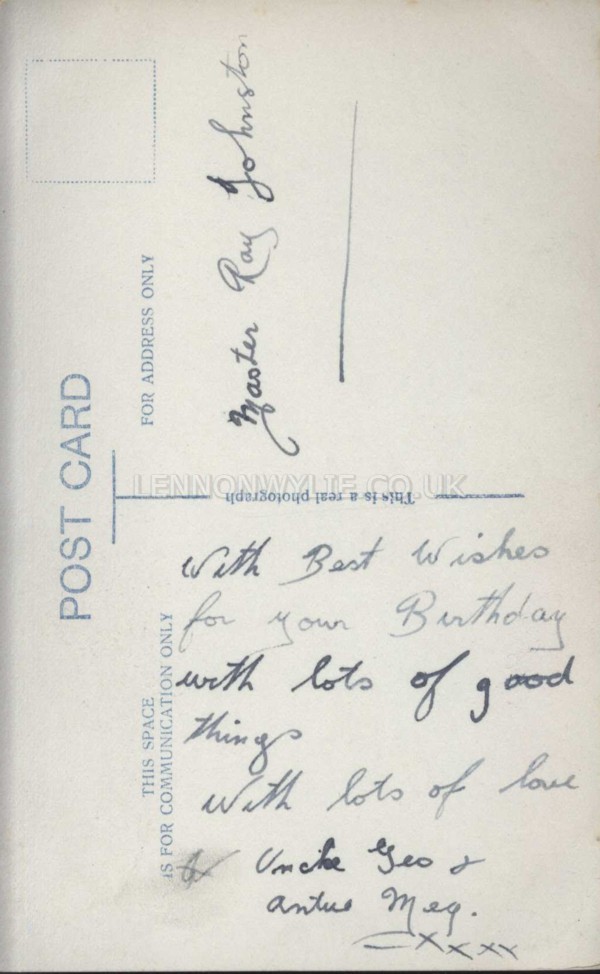 POST CARD
THIS SPACE
IS FOR COMMUNICATION ONLY
FOR ADDRESS ONLY
This is a real photograph
LENNONWYLIE.CO.UK
Master Ray Johnston
With Best Wishes
for your Birthday
with lots of good
things
With lots of love
Uncle Geo &
Antie Meg.
xxxx